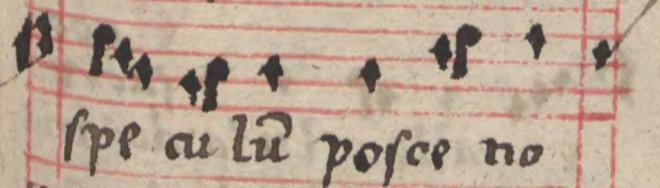 spe cu lū posce no